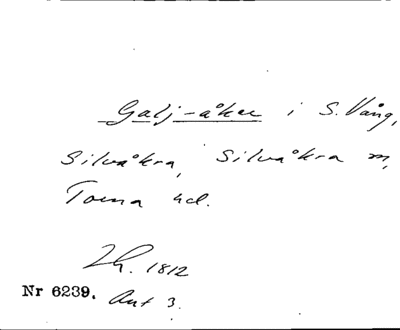 Galj-åker i S. Vång,
Silvåkra, Silvåkra m,
Torna hd.
Zh. 1812
Nr 6239. Ant 3.